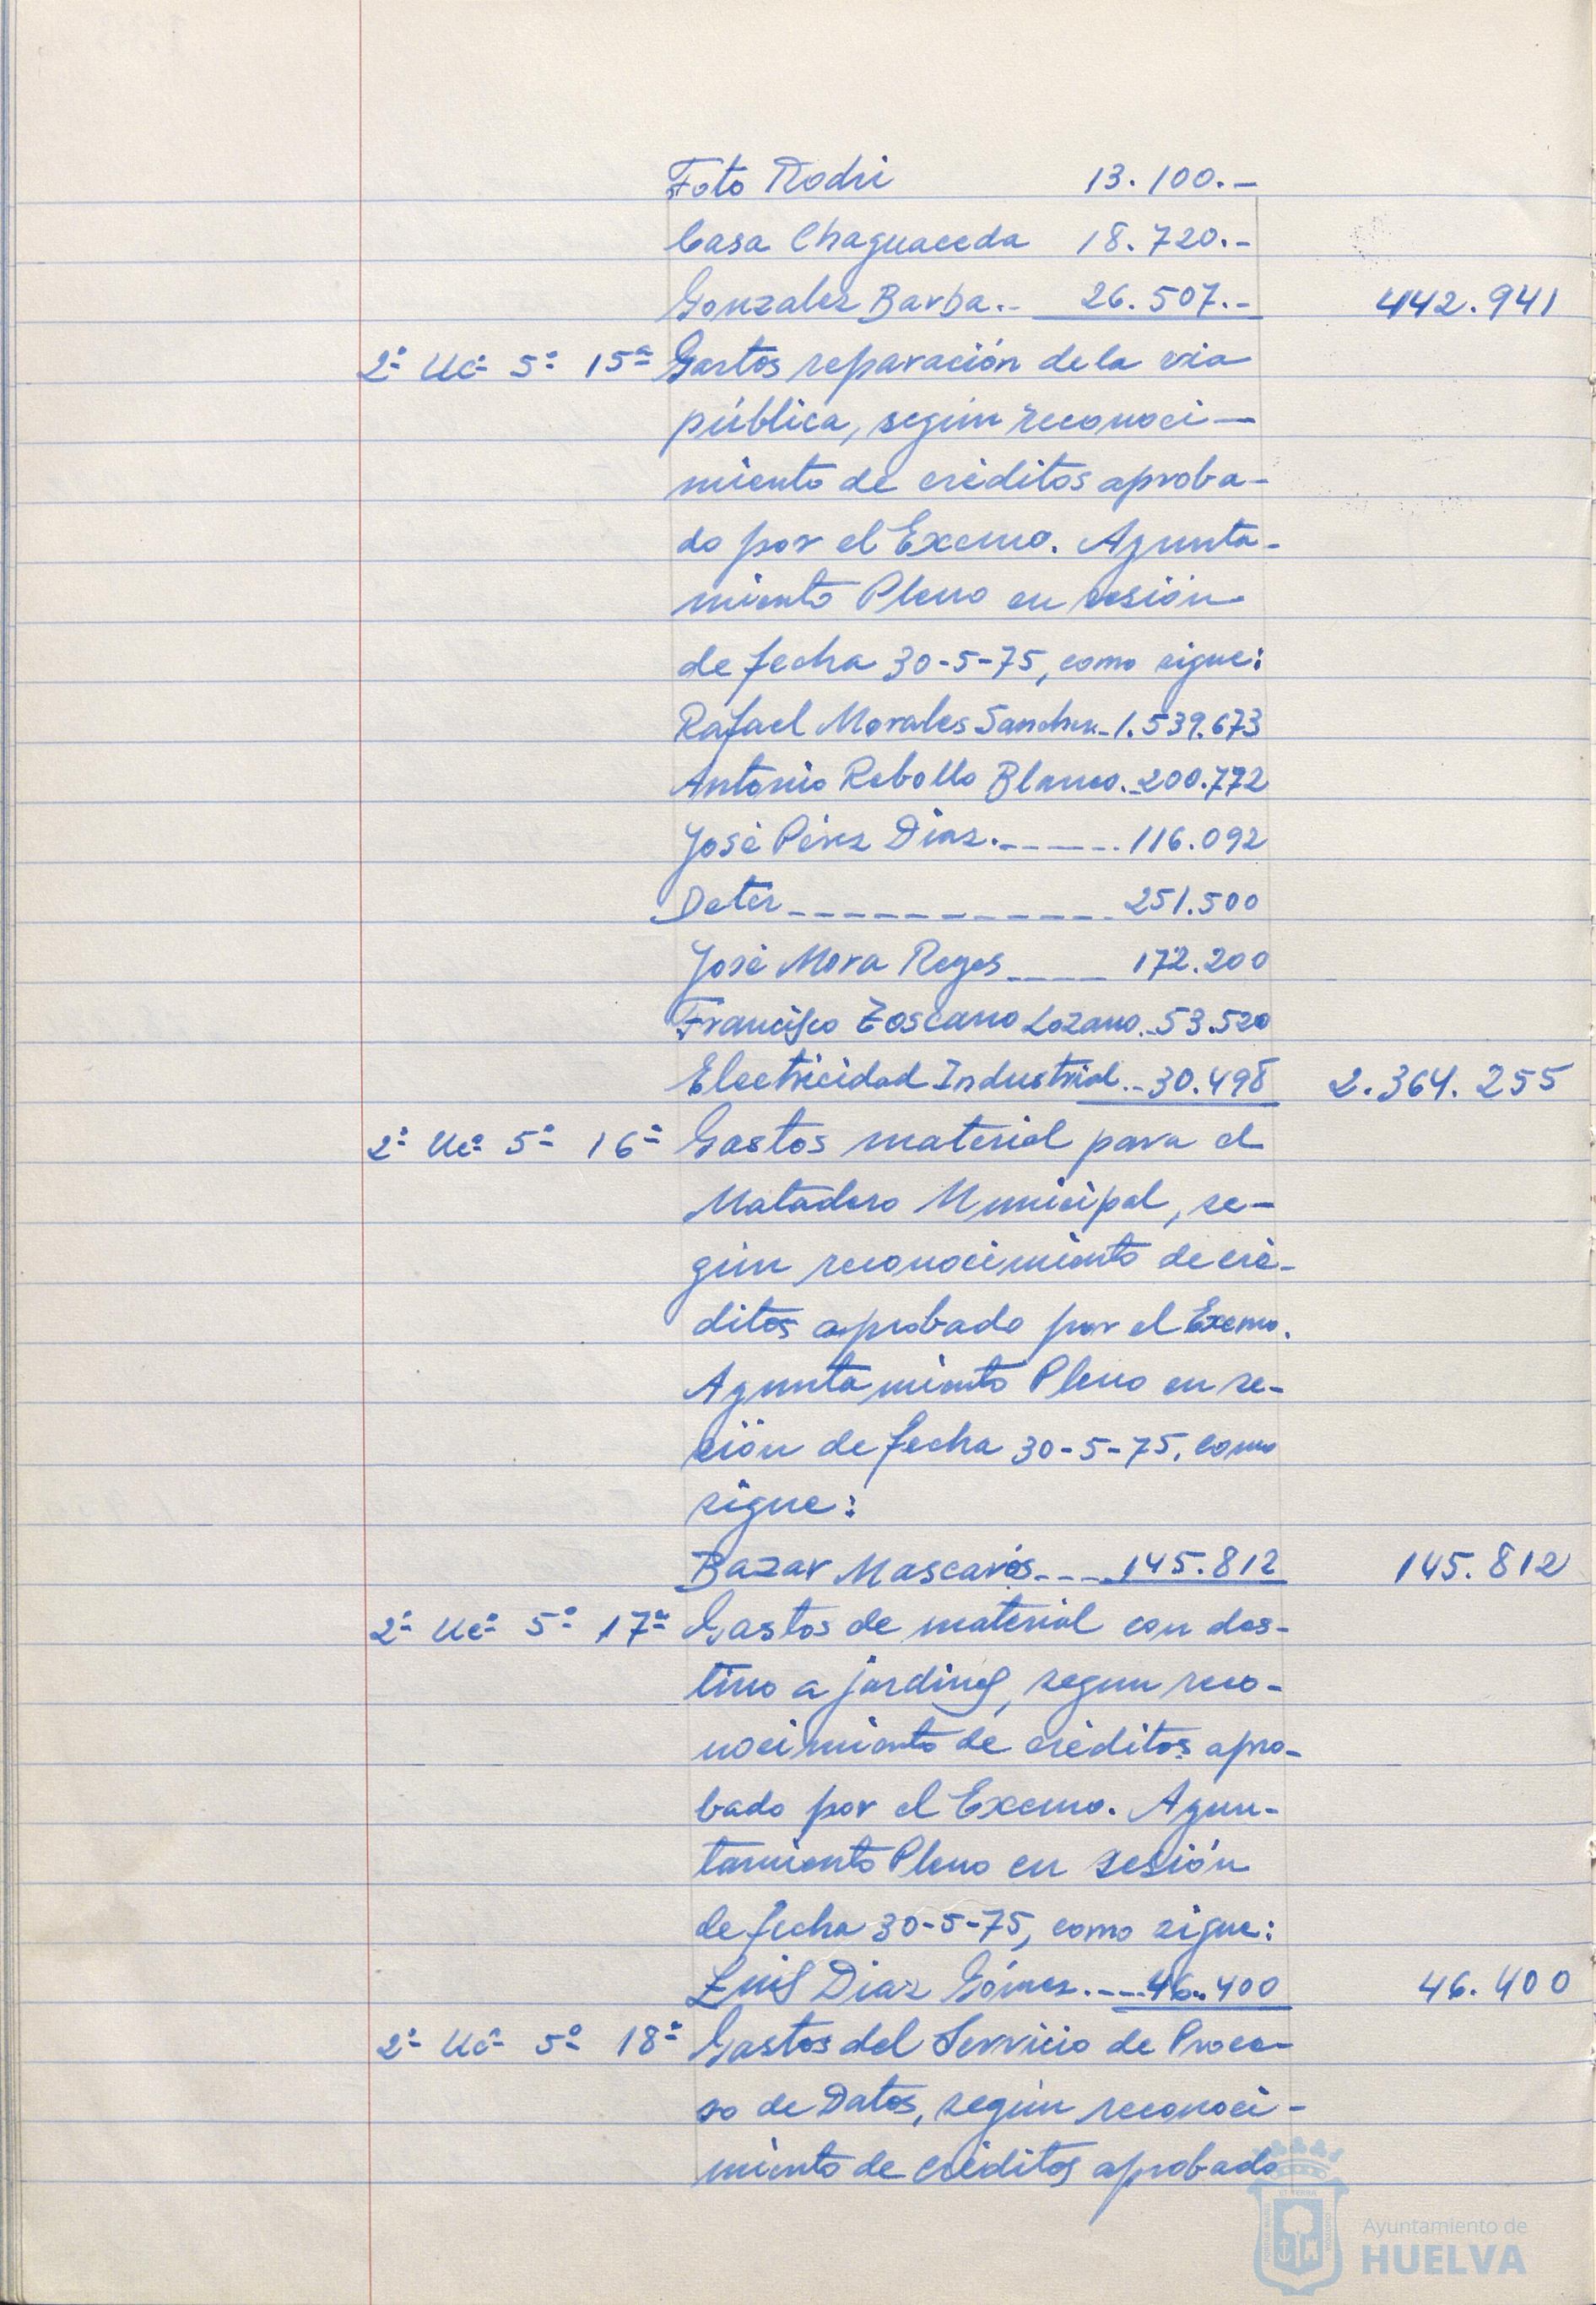 Foto Rodri 13.100.-
Casa Chaguaceda 18.720.-
Gonzalez Barba.- 26.507.- 442.941
2º Uº 5º 15ª Gastos reparación de la via
pública, según reconoci-
miento de créditos aproba-
do por el Excmo. Ayunta-
miento Pleno en sesión
de fecha 30-5-75, como sigue:
Rafael Morales Sanchez 1.539.673
Antonio Rebollo Blanco.- 200.772
José Pérez Diaz.- 116.092
Deter 251.500
José Mora Reyes 172.200
Francisco Toscano Lozano.- 53.520
Electricidad Industrial.- 30.498 2.364.255
2º 5º 16ª Gastos material para el
Matadero Municipal, se-
gún reconocimiento de cré-
ditos aprobado por el Excmo.
Ayuntamiento Pleno en se-
sión de fecha 30-5-75, como
sigue:
Bazar Mascarós 145.812 145.812
2º 5º 17ª Gastos de material con des-
tino a jardines, segun reco-
nocimiento de créditos apro-
bado por el Excmo. Ayun-
tamiento Pleno en sesión
de fecha 30-5-75, como sigue:
Luis Diaz Gómez.- 46.400 46.400
2º 5º 18ª Gastos del Servicio de Proce-
so de Datos, según reconoci-
miento de créditos aprobado
Ayuntamiento de
HUELVA